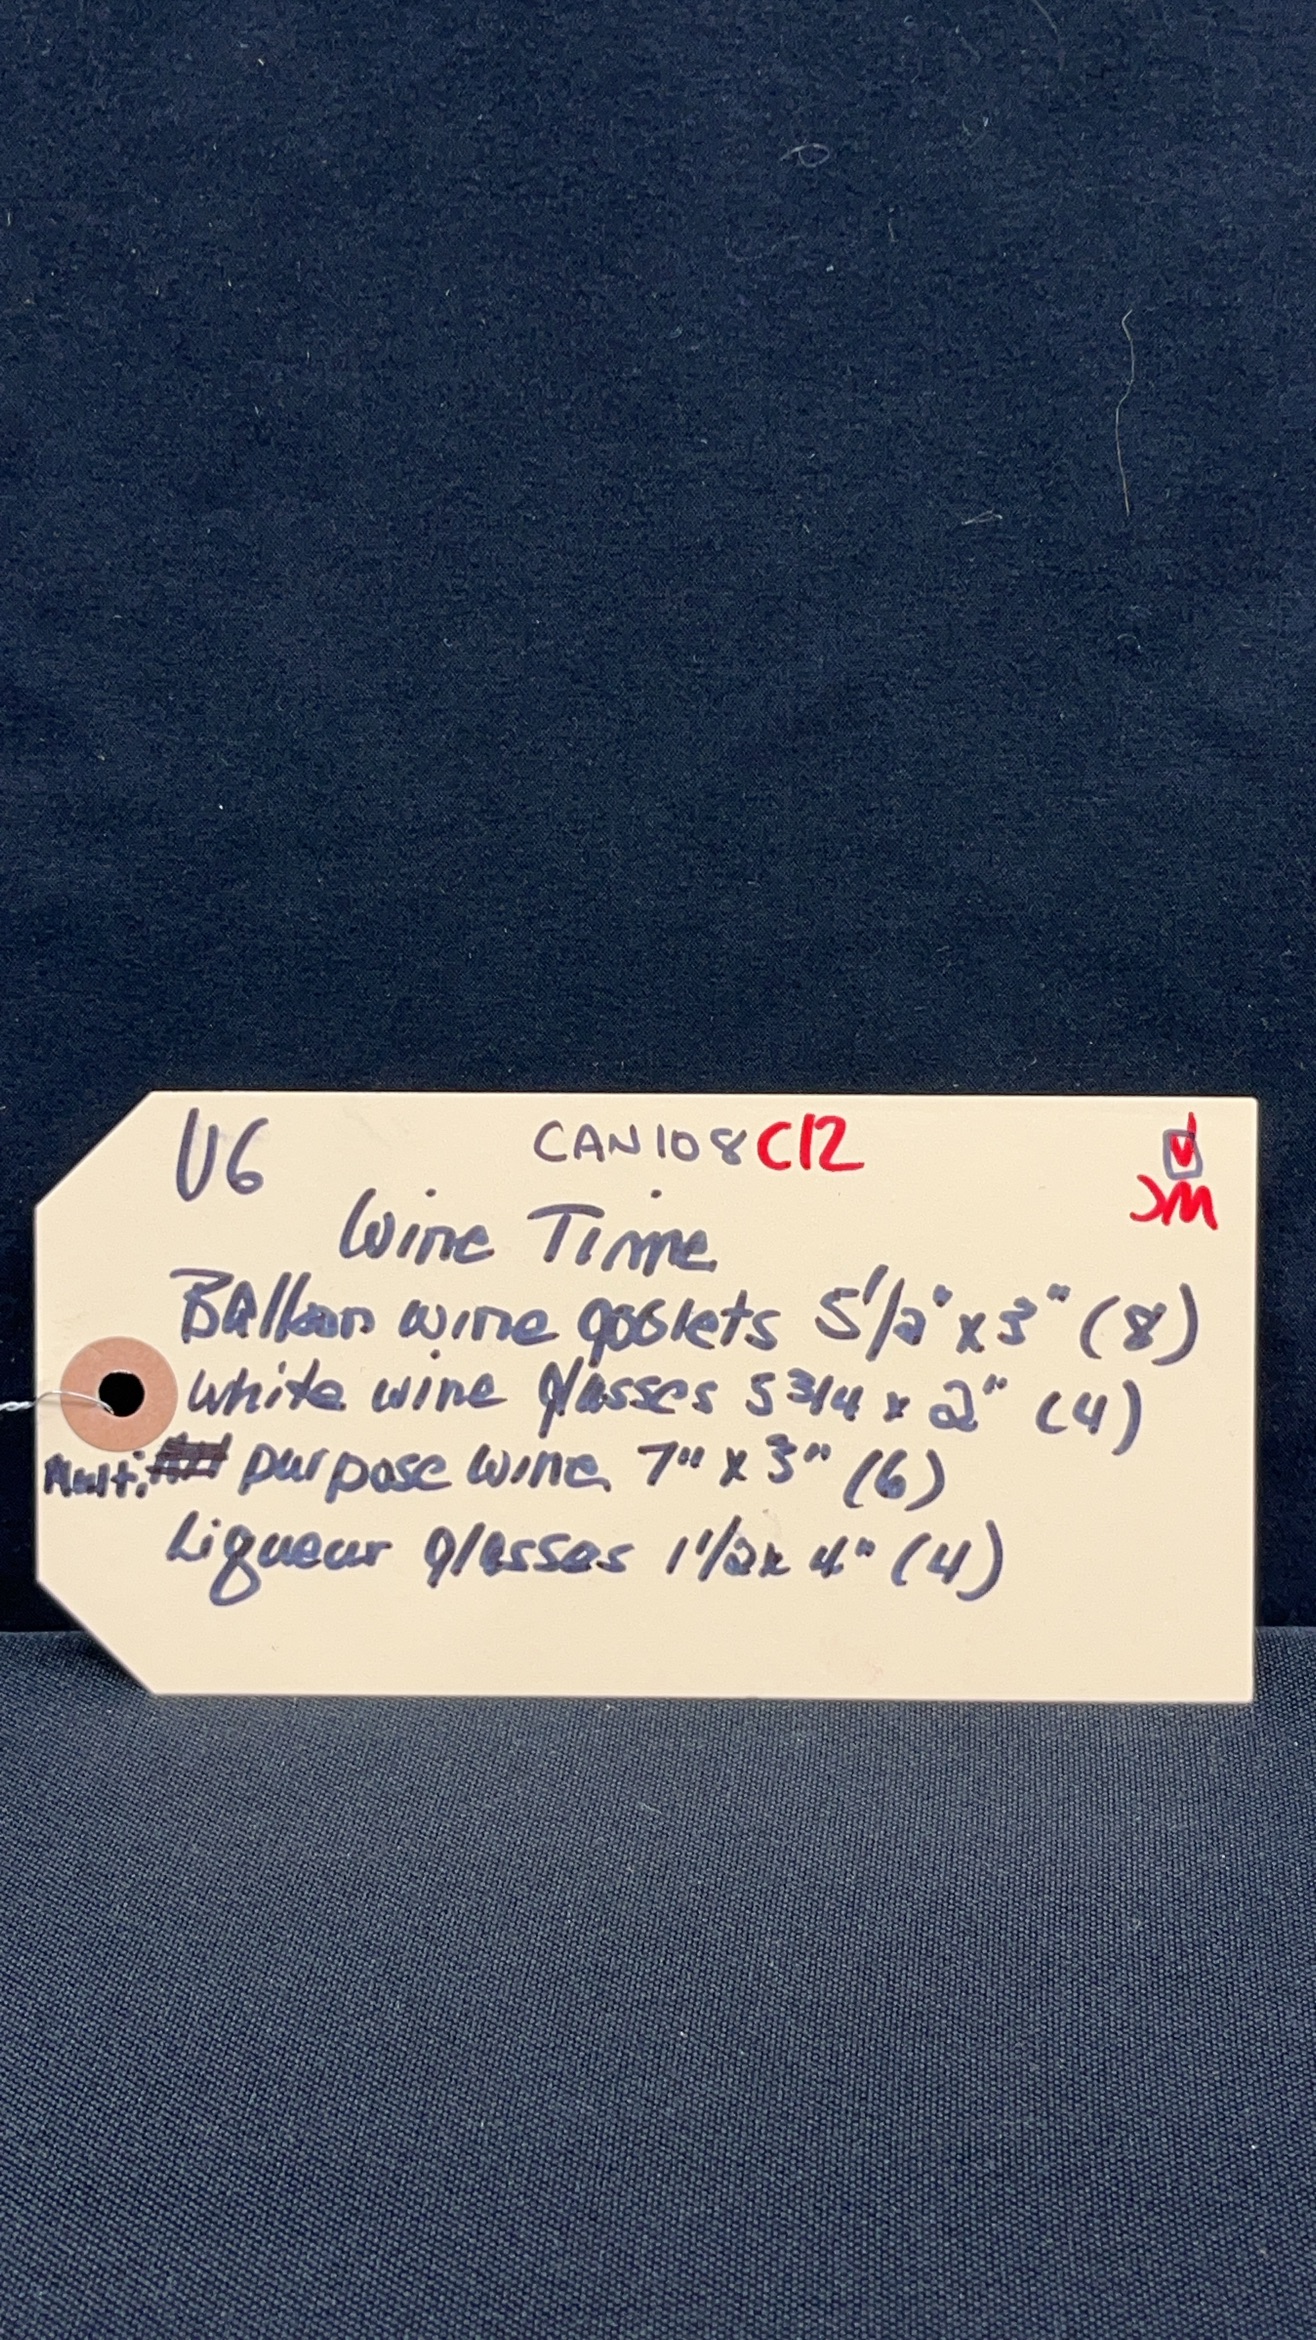 V6 CAN108 C12
JM
Wine Time
Balloon wine goblets 5 1/2" x 3" (8)
White wine glasses 5 3/4 x 2" (4)
Multi. purpose wine 7" x 3" (6)
Liqueur glasses 1 1/2 x 4" (4)